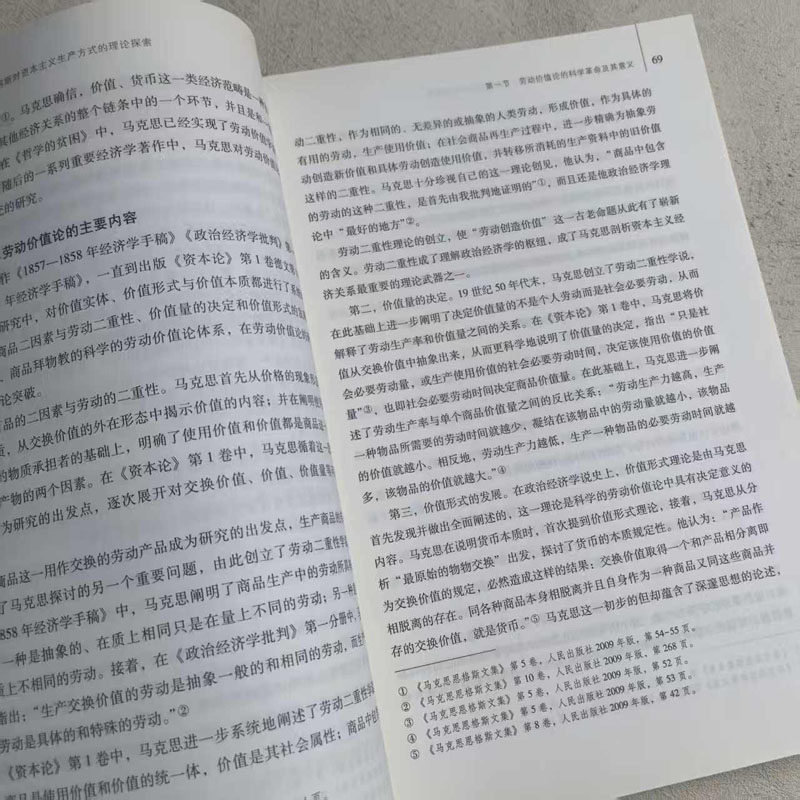 对资本主义生产方式的理论探索
①。马克思确信，价值、货币这一类经济范畴是一种
其他经济关系的整个链条中的一个环节，并且是和
在《哲学的贫困》中，马克思已经实现了劳动价值
随后的一系列重要经济学著作中，马克思对劳动价值
的研究。
劳动价值论的主要内容
作《1857—1858 年经济学手稿》《政治经济学批判》第
年经济学手稿》，一直到出版《资本论》第 1 卷德文
研究中，对价值实体、价值形式与价值本质都进行了
商品二因素与劳动二重性、价值量的决定和价值形式的
、商品拜物教的科学的劳动价值论体系，在劳动价值论
论突破。
品的二因素与劳动的二重性。马克思首先从价格的现象形
，从交换价值的外在形态中揭示价值的内容；并在阐明
的物质承担者的基础上，明确了使用价值和价值都是商品
产物的两个因素。在《资本论》第 1 卷中，马克思循着这一
为研究的出发点，逐次展开对交换价值、价值、价值量
商品这一用作交换的劳动产品成为研究的出发点，生产商品的
了马克思探讨的另一个重要问题，由此创立了劳动二重性学
858 年经济学手稿》中，马克思阐明了商品生产中的劳动所具
一种是抽象的、在质上相同只是在量上不同的劳动；另一种
质上不相同的劳动。接着，在《政治经济学批判》第一分册中，
指出：“生产交换价值的劳动是抽象一般的和相同的劳动，而
劳动是具体的和特殊的劳动。”②
《资本论》第 1 卷中，马克思进一步系统地阐述了劳动二重性学
商品是使用价值和价值的统一体，价值是其社会属性；商品中
第一节 劳动价值论的科学革命及其意义 69
动二重性，作为相同的、无差异的或抽象的人类劳动，形成价值，作为具体的
有用的劳动，生产使用价值；在社会商品再生产过程中，进一步精确为抽象劳
动创造新价值和具体劳动创造使用价值，并转移所消耗的生产资料中的旧价值
这样的二重性。马克思十分珍视自己的这一理论创见，他认为，“商品中包含
的劳动的这种二重性，是首先由我批判地证明的”①，而且还是他政治经济学理
论中“最好的地方”②。
劳动二重性理论的创立，使“劳动创造价值”这一古老命题从此有了崭新
的含义。劳动二重性成了理解政治经济学的枢纽，成了马克思剖析资本主义经
济关系最重要的理论武器之一。
第二，价值量的决定。19 世纪 50 年代末，马克思创立了劳动二重性学说，
在此基础上进一步阐明了决定价值量的不是个人劳动而是社会必要劳动，从而
解释了劳动生产率和价值量之间的关系。在《资本论》第 1 卷中，马克思将价
值从交换价值中抽象出来，从而更科学地说明了价值量的决定，指出“只是社
会必要劳动量，或生产使用价值的社会必要劳动时间，决定该使用价值的价值
量”③，也即社会必要劳动时间决定商品价值量。在此基础上，马克思进一步阐
述了劳动生产率与单个商品价值量之间的反比关系：“劳动生产力越高，生产
一种物品所需要的劳动时间就越少，凝结在该物品中的劳动量就越小，该物品
的价值就越小。相反地，劳动生产力越低，生产一种物品的必要劳动时间就越
多，该物品的价值就越大。”④
第三，价值形式的发展。在政治经济学说史上，价值形式理论是由马克思
首先发现并做出全面阐述的，这一理论是科学的劳动价值论中具有决定意义的
内容。马克思在说明货币本质时，首次提到价值形式理论，接着，马克思从分
析“最原始的物物交换”出发，探讨了货币的本质规定性。他认为：“产品作
为交换价值的规定，必然造成这样的结果：交换价值取得一个和产品相分离即
相脱离的存在。同各种商品本身相脱离并且自身作为一种商品又同这些商品并
存的交换价值，就是货币。”⑤ 马克思这一初步的但却蕴含了深邃思想的论述，
① 《马克思恩格斯文集》第 5 卷，人民出版社 2009 年版，第 54–55 页。
② 《马克思恩格斯文集》第 10 卷，人民出版社 2009 年版，第 268 页。
③ 《马克思恩格斯文集》第 5 卷，人民出版社 2009 年版，第 52 页。
④ 《马克思恩格斯文集》第 5 卷，人民出版社 2009 年版，第 53 页。
⑤ 《马克思恩格斯文集》第 8 卷，人民出版社 2009 年版，第 42 页。